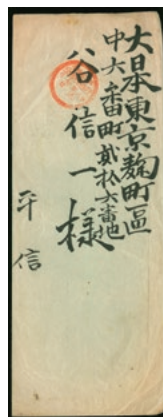 大日本東京麹町區
中六番町貳拾六番地
谷信一様
平信